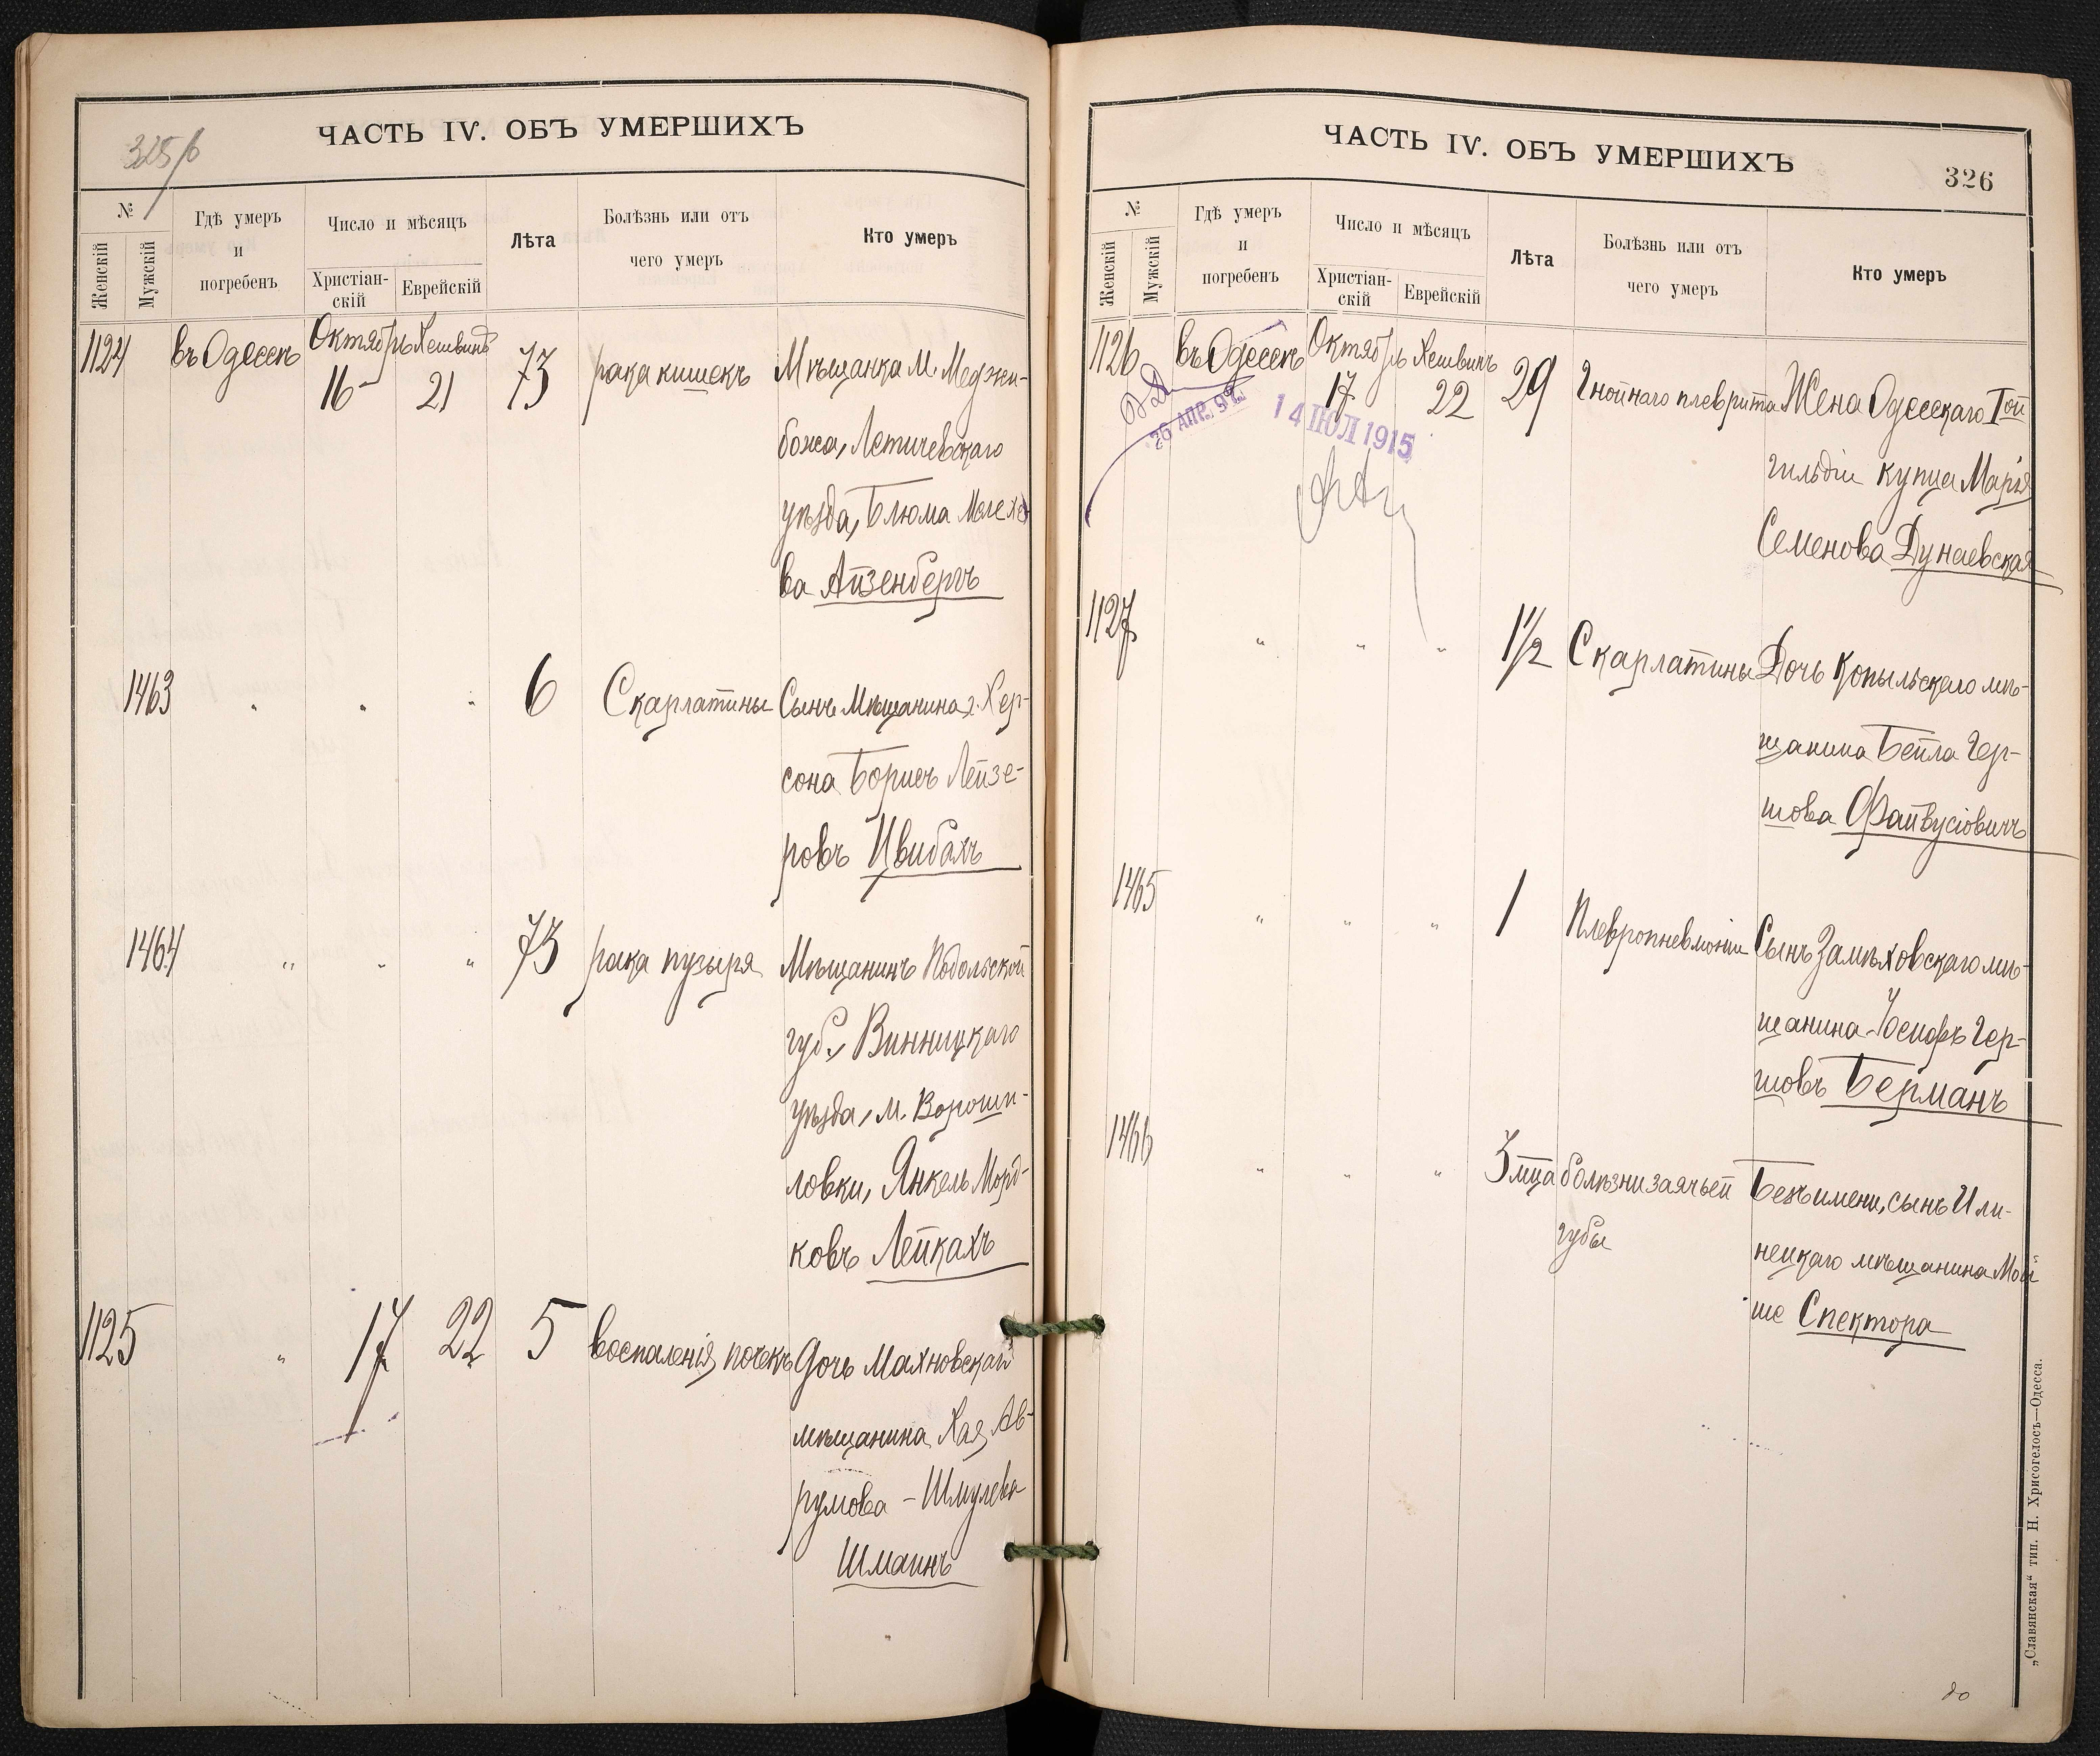 325/б
ЧАСТЬ IV. ОБЪ УМЕРШИХЪ
№
Женскій
Мужскій
Гдѣ умеръ
и
погребенъ
Число и мѣсяцъ
Христіан-
скій
Еврейскій
Лѣта
Болѣзнь или отъ
чего умеръ
Кто умеръ
1124 въ Одессѣ Октябрь 16 Хешвинъ 21 73 рака кишекъ Мѣщанка М. Меджи-
божа, Летичевскаго
уѣзда, Блюма Мелехо
ва Айзенбергъ
1463 " " " 6 Скарлатины Сынъ Мѣщанина г. Хер-
сона Борисъ Лейзе-
ровъ Цвибахъ
1464 " " " 73 рака пузыря Мѣщанинъ Подольской
губ., Винницкаго
уѣзда, м. Вороши-
ловки, Янкель Морд-
ковъ Лейкахъ
1125 " 17 22 5 воспаленія почекъ Дочь Махновскаго
мѣщанина Хая Ав-
румова - Шмулева
Шмаинъ
ЧАСТЬ IV. ОБЪ УМЕРШИХЪ
326
№
Женскій
Мужскій
Гдѣ умеръ
и
погребенъ
Число и мѣсяцъ
Христіан-
скій
Еврейскій
Лѣта
Болѣзнь или отъ
чего умеръ
Кто умеръ
1126 въ Одессѣ Октябрь 17 Хешвинъ 22 29 Гнойнаго плеврита Жена Одесскаго Iой
гильдіи купца Марія
Семенова Дунаевская
26 АПР. 97
14 ІЮЛ 1915
1127 " " " 1½ Скарлатины Дочь Копыльскаго мѣ-
щанина Бейла Гер-
шова Файвусіовичъ
1465 " " " 1 Плевропневмоніи Сынъ Замѣховскаго мѣ-
щанина Іосифъ Гер-
шовъ Берманъ
1466 " " " 3 мца болѣзни заячьей Безъ имени, сынъ Или-
губы
нецкаго мѣщанина Мой-
ше Спектора
„Славянская“ тип. Н. Хрисогелосъ—Одесса.